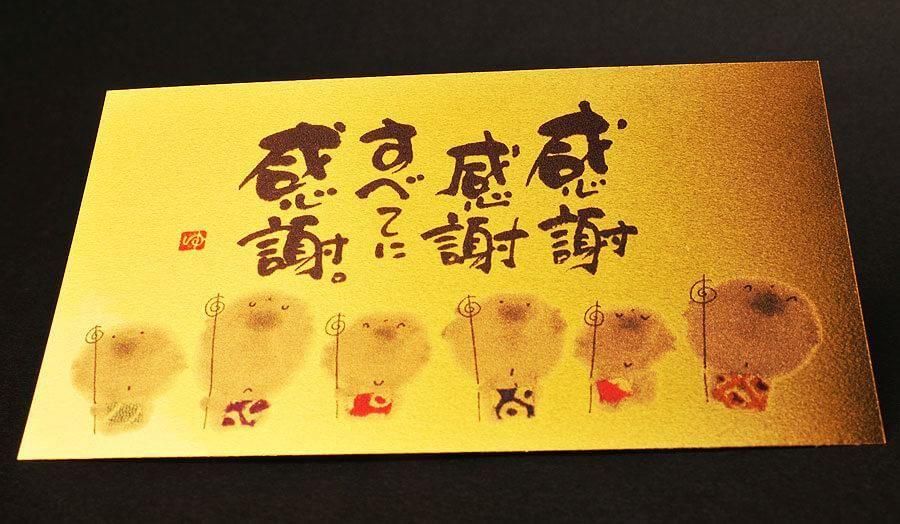 感謝
感謝
すべてに
感謝。
ゆ